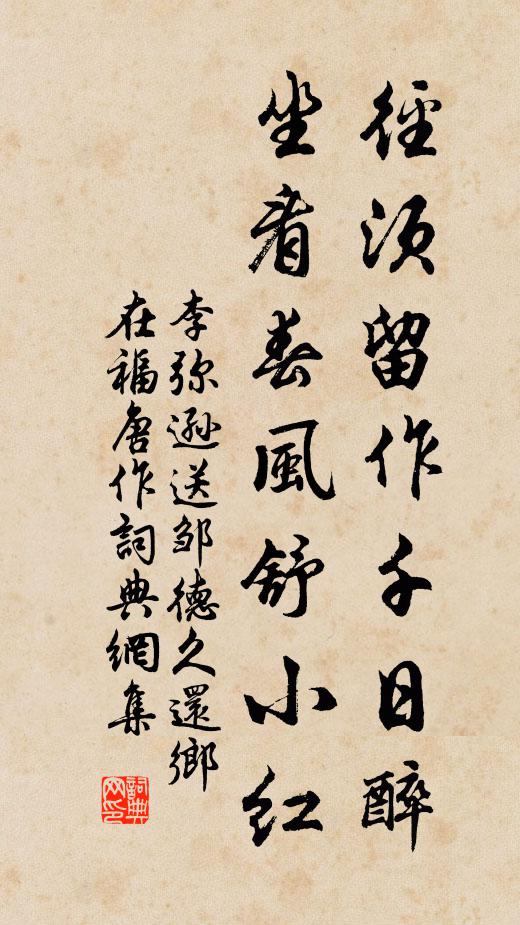 徑須留作千日醉
坐看春風舒小紅
李弥遜送邹德久還鄉
在福唐作詞典網集
詞典
网印